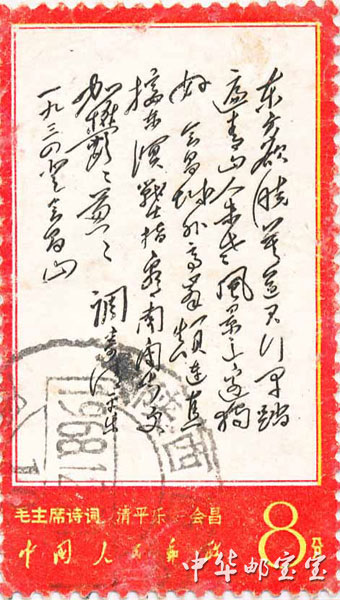 东方欲晓莫道君行早踏
遍青山人未老风景这边独
好 会昌城外高峰颠连直
接东溟战士指看南粤更
加鬱〻葱〻
调寄清平乐
一九三四登会昌山
西
1968.12
毛主席诗词 清平乐·会昌
中国人民邮政
8分
中华邮宝宝